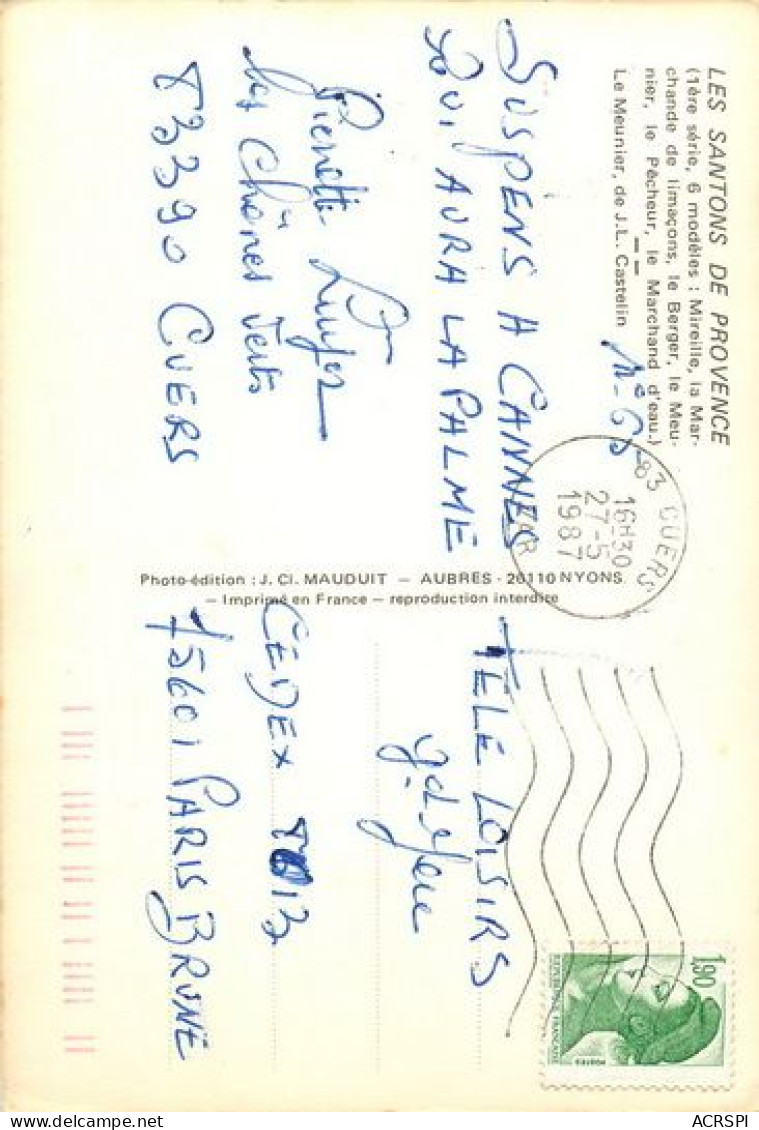 LES SANTONS DE PROVENCE
(1ère série, 6 modèles : Mireille, la Mar-
chande de limaçons, le Berger, le Meu-
nier, le Pêcheur, le Marchand d'eau.)
Le Meunier, de J.L. Castelin
N° 65
SUSPENS A CANNES
QUI AURA LA PALME
Pierrette
Les Chênes Verts
83390 CUERS
83 CUERS
16H30
27-5
1987
VAR
Photo-édition : J. Cl. MAUDUIT — AUBRES - 26110 NYONS
— Imprimé en France — reproduction interdite
TELE LOISIRS
CEDEX
75601 PARIS BRUNE
1,90
REPUBLIQUE FRANÇAISE
POSTES
delcampe.net
ACRSPI